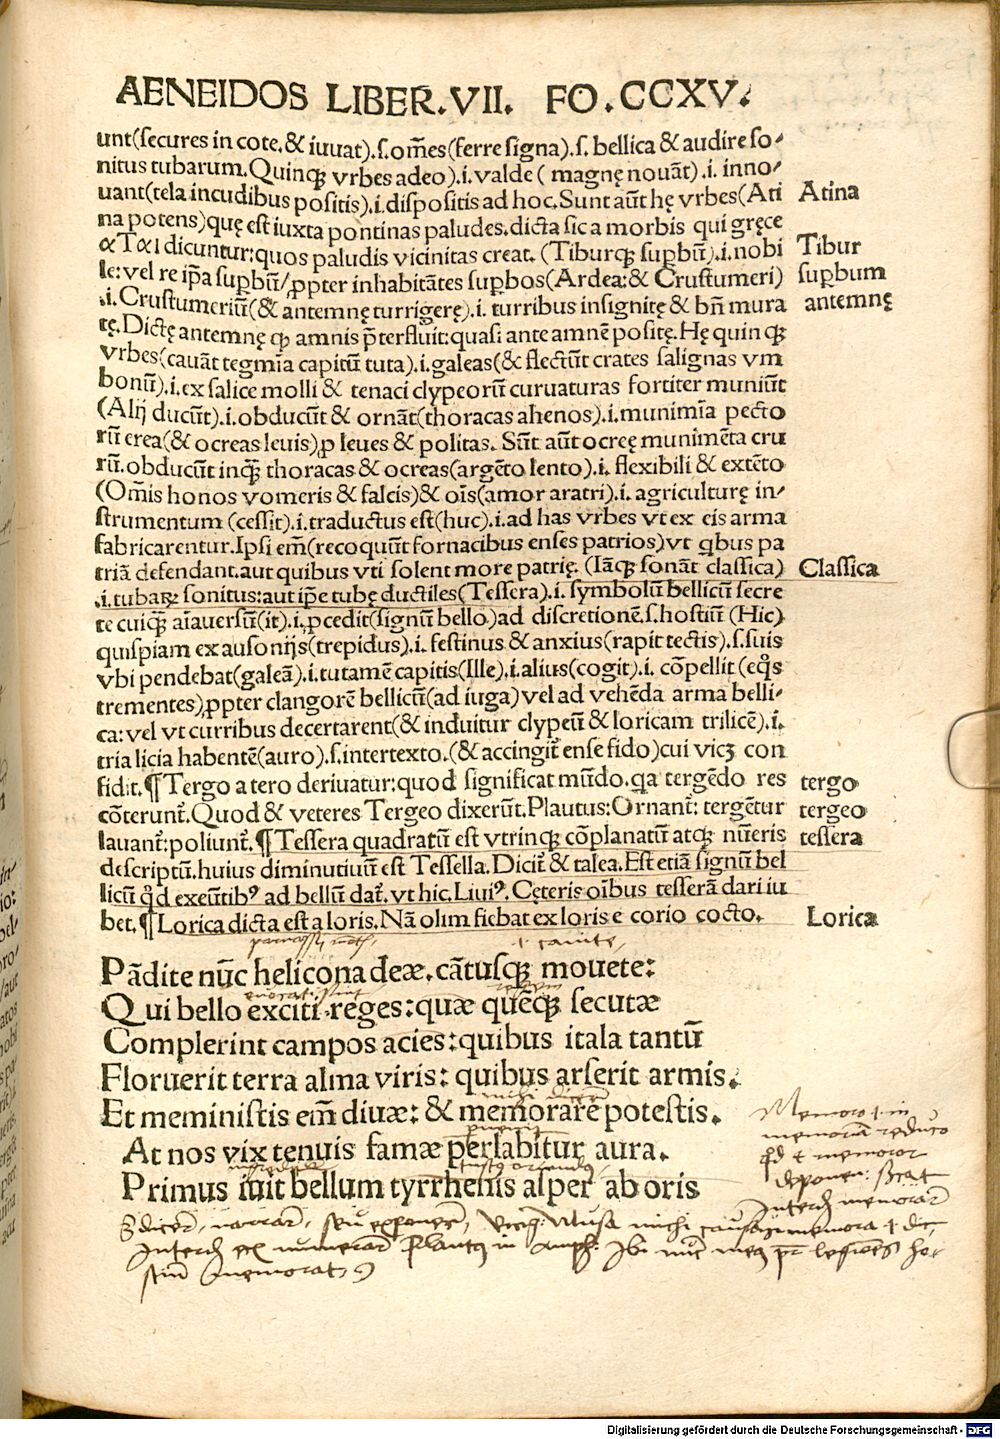 AENEIDOS LIBER.VII. FO.CCXV.
unt(secures in cote.& iuuat).s.om̃es(ferre signa).s. bellica & audire so-
nitus tubarum.Quinqꝫ vrbes adeo).i.valde ( magnę nouãt).i. inno-
uant(tela incudibus positis).i.dispositis ad hoc.Sunt aũt hę vrbes(Ati
na potens)quę est iuxta pontinas paludes.dicta sic a morbis qui gręce
αΤαι dicuntur:quos paludis vicinitas creat. (Tiburqꝫ supbũ).i.nobi
le:vel re ip̃a supbũ/ꝓpter inhabitãtes supbos(Ardea:& Crustumeri)
.i.Crustumeriũ(& antemnę turrigerę).i. turribus insignitę & bñ mura
tę.Dictę antemnę ꝙ amnis p̃terfluit:quasi ante amnẽ positę.Hę quinqꝫ
vrbes(cauãt tegmĩa capitũ tuta).i.galeas(& flectũt crates salignas vm
bonũ).i.ex salice molli & tenaci clypeorũ curuaturas fortiter muniũt
(Alij ducũt).i.obducũt & ornãt(thoracas ahenos).i.munimĩa pecto
rũ erea(& ocreas leuis)ꝓ leues & politas. Sũt aũt ocreę munimẽta cru
rũ.obducũt inqꝫ̃ thoracas & ocreas(argẽto lento).i. flexibili & extẽto
(Om̃is honos vomeris & falcis)& oĩs(amor aratri).i. agriculturę in-
strumentum (cessit).i.traductus est(huc).i.ad has vrbes vt ex eis arma
fabricarentur.Ipsi em̃(recoquũt fornacibus enses patrios)vt qbus pa
triã defendant.aut quibus vti solent more patrię. (Iãqꝫ sonãt classica)
.i.tubaꝝ sonitus:aut ip̃e tubę ductiles(Tessera).i. symbolũ bellicũ secre
te cuiqꝫ̃ aĩauersũ(it).i.ꝓcedit(signũ bello)ad discretionẽ.s.hostiũ (Hic)
quispiam ex ausonijs(trepidus).i. festinus & anxius(rapit tectis).s.suis
vbi pendebat(galeã).i.tutamẽ capitis(Ille).i.alius(cogit).i. cõpellit (eqͦs
trementes)ꝓpter clangorẽ bellicũ(ad iuga)vel ad vehẽda arma belli-
ca:vel vt curribus decertarent(& induitur clypeũ & loricam trilicẽ).i.
tria licia habentẽ(auro).s.intertexto.(& accingit̃ ense fido)cui vicꝫ con
fidit.¶Tergo a tero deriuatur:quod significat mũdo.qa tergẽdo res
cõterunt̃.Quod & veteres Tergeo dixerũt.Plautus:Ornant̃: tergẽtur
lauant̃:poliunt̃.¶Tessera quadratũ est vtrinqꝫ cõplanatũ atqꝫ nũeris
descriptũ.huius diminutiuũ est Tessella.Dicit̃ & talea.Est etiã signũ bel
licũ qd̃ exeũtibꝰ ad bellũ dat̃.vt hic.Liuiꝰ.Cęteris oĩbus tesserã dari iu
bet.¶Lorica dicta est a loris.Nã olim fiebat ex loris e corio cocto.
Atina
Tibur
supbum
antemnę
Classica
tergo
tergeo
tessera
Lorica
Pãdite nũc helicona deæ.cãtusqꝫ mouete:
Qui bello exciti reges:quæ quẽqꝫ secutæ
Complerint campos acies:quibus itala tantũ
Floruerit terra alma viris: quibus arserit armis.
Et meministis em̃ diuæ: & memorare potestis.
At nos vix tenuis famæ perlabitur aura.
Primus iniit bellum tyrrhenis asper ab oris
Digitalisierung gefördert durch die Deutsche Forschungsgemeinschaft - DFG